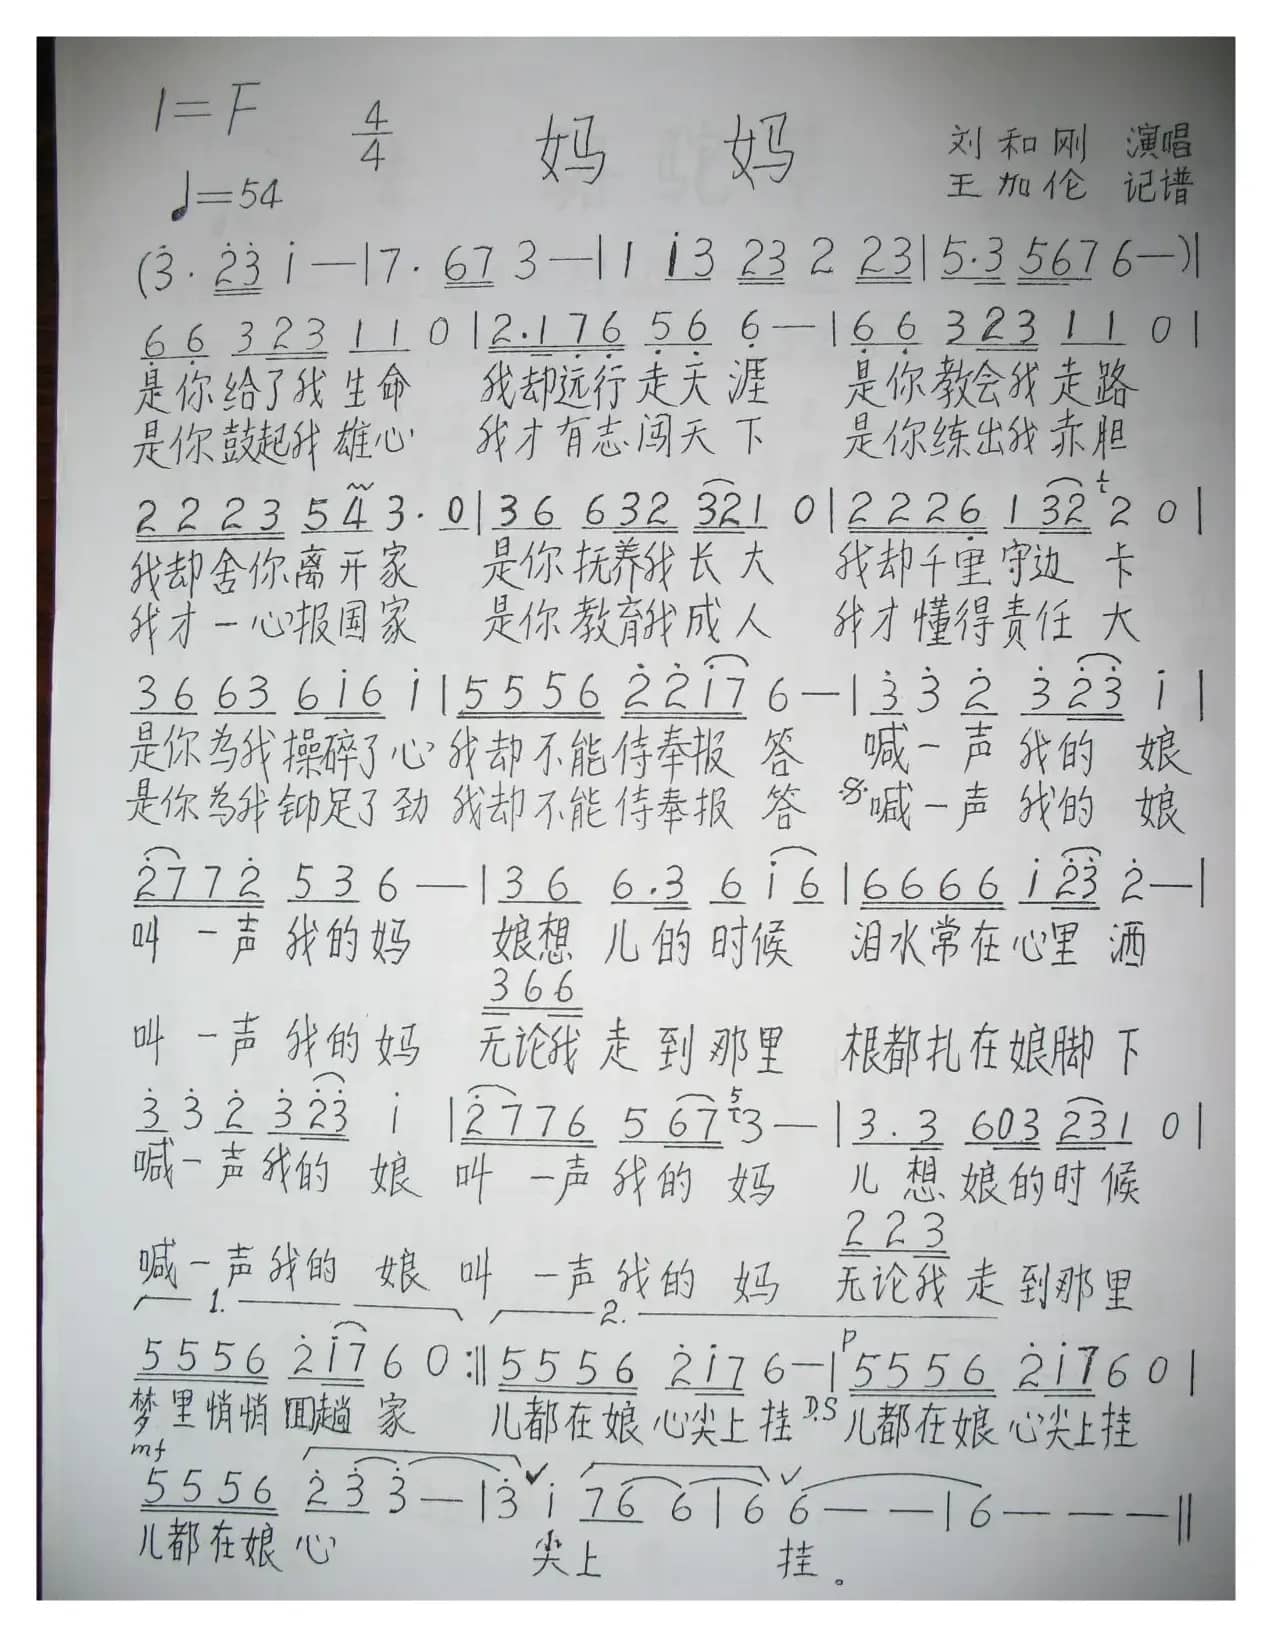 1=F 4/4 妈 妈 刘和刚 演唱
♩=54 王加伦 记谱
(3̇· 2̇3̇ 1̇ — | 7· 67 3 — | 1 1̇3 23 2 23 | 5·3 5676 — ) |
6̣ 6̣ 323 11 0 | 2·17̣6̣ 5̣6̣ 6̣ — | 6̣ 6̣ 323 11 0 |
是你给了我生命 我却远行走天涯 是你教会我走路
是你鼓起我雄心 我才有志闯天下 是你练出我赤胆
2223 54 3· 0 | 36 632 321 0 | 2226̣ 132 2 0 |
我却舍你离开家 是你抚养我长大 我却千里守边卡
我才一心报国家 是你教育我成人 我才懂得责任大
36 63 61̇6 1̇ | 5556 2̇2̇1̇7 6 — | 3̇ 3̇ 2̇ 3̇2̇3̇ 1̇ |
是你为我操碎了心 我却不能侍奉报答 喊一声我的娘
是你为我铆足了劲 我却不能侍奉报答 𝄋喊一声我的娘
2̇772̇ 536 — | 36 6·3 61̇6 | 6666 1̇2̇3̇ 2̇ — |
叫一声我的妈 娘想儿的时候 泪水常在心里洒
366
叫一声我的妈 无论我走到那里 根都扎在娘脚下
3̇ 3̇ 2̇ 3̇2̇3̇ 1̇ | 2̇776 567 5 3 — | 3·3 603 231 0 |
喊一声我的娘 叫一声我的妈 儿想娘的时候
223
喊一声我的娘 叫一声我的妈 无论我走到那里
1. 2.
5556 2̇1̇7 6 0 :‖ 5556 2̇1̇7 6 — | p 5556 2̇1̇7 6 0 |
梦里悄悄回趟家 儿都在娘心尖上挂 D.S 儿都在娘心尖上挂
mf
5556 2̇3̇ 3̇ — | 3̇ 1̇ 76 6 | 6 6 — — | 6 — — — ‖
儿都在娘心 尖上 挂。